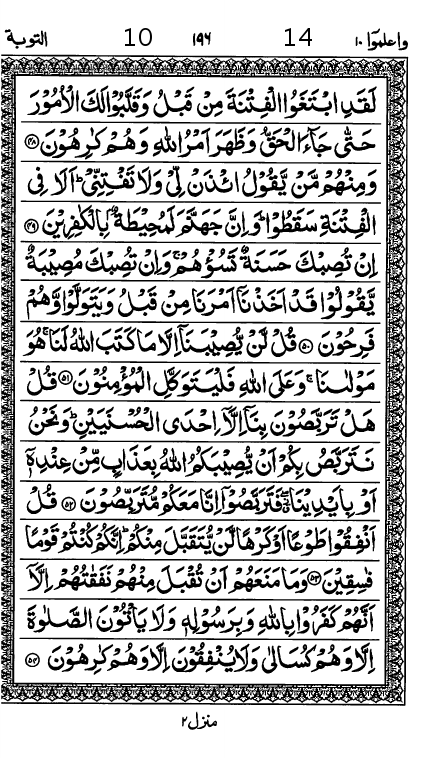 واعلموا ١٠ 14 ١٩٦ 10 التوبة
لَقَدِ ابْتَغَوُا الْفِتْنَةَ مِنْ قَبْلُ وَقَلَّبُوْا لَكَ الْاُمُوْرَ
حَتّٰى جَآءَ الْحَقُّ وَظَهَرَ اَمْرُ اللّٰهِ وَهُمْ كٰرِهُوْنَ ﴿۴۸﴾
وَمِنْهُمْ مَّنْ يَّقُوْلُ ائْذَنْ لِّىْ وَلَا تَفْتِنِّىْ ؕ اَلَا فِى
الْفِتْنَةِ سَقَطُوْا ؕ وَاِنَّ جَهَنَّمَ لَمُحِيْطَةٌۢ بِالْكٰفِرِيْنَ ﴿۴۹﴾
اِنْ تُصِبْكَ حَسَنَةٌ تَسُؤْهُمْ ۚ وَاِنْ تُصِبْكَ مُصِيْبَةٌ
يَّقُوْلُوْا قَدْ اَخَذْنَاۤ اَمْرَنَا مِنْ قَبْلُ وَيَتَوَلَّوْا وَّهُمْ
فَرِحُوْنَ ﴿۵۰﴾ قُلْ لَّنْ يُّصِيْبَنَاۤ اِلَّا مَا كَتَبَ اللّٰهُ لَنَا ۚ هُوَ
مَوْلٰىنَا ۚ وَعَلَى اللّٰهِ فَلْيَتَوَكَّلِ الْمُؤْمِنُوْنَ ﴿۵۱﴾ قُلْ
هَلْ تَرَبَّصُوْنَ بِنَاۤ اِلَّاۤ اِحْدَى الْحُسْنَيَيْنِ ؕ وَنَحْنُ
نَتَرَبَّصُ بِكُمْ اَنْ يُّصِيْبَكُمُ اللّٰهُ بِعَذَابٍ مِّنْ عِنْدِهٖۤ
اَوْ بِاَيْدِيْنَا ۖ فَتَرَبَّصُوْۤا اِنَّا مَعَكُمْ مُّتَرَبِّصُوْنَ ﴿۵۲﴾ قُلْ
اَنْفِقُوْا طَوْعًا اَوْ كَرْهًا لَّنْ يُّتَقَبَّلَ مِنْكُمْ ؕ اِنَّكُمْ كُنْتُمْ قَوْمًا
فٰسِقِيْنَ ﴿۵۳﴾ وَمَا مَنَعَهُمْ اَنْ تُقْبَلَ مِنْهُمْ نَفَقٰتُهُمْ اِلَّاۤ
اَنَّهُمْ كَفَرُوْا بِاللّٰهِ وَبِرَسُوْلِهٖ وَلَا يَاْتُوْنَ الصَّلٰوةَ
اِلَّا وَهُمْ كُسَالٰى وَلَا يُنْفِقُوْنَ اِلَّا وَهُمْ كٰرِهُوْنَ ﴿۵۴﴾
منزل ۲